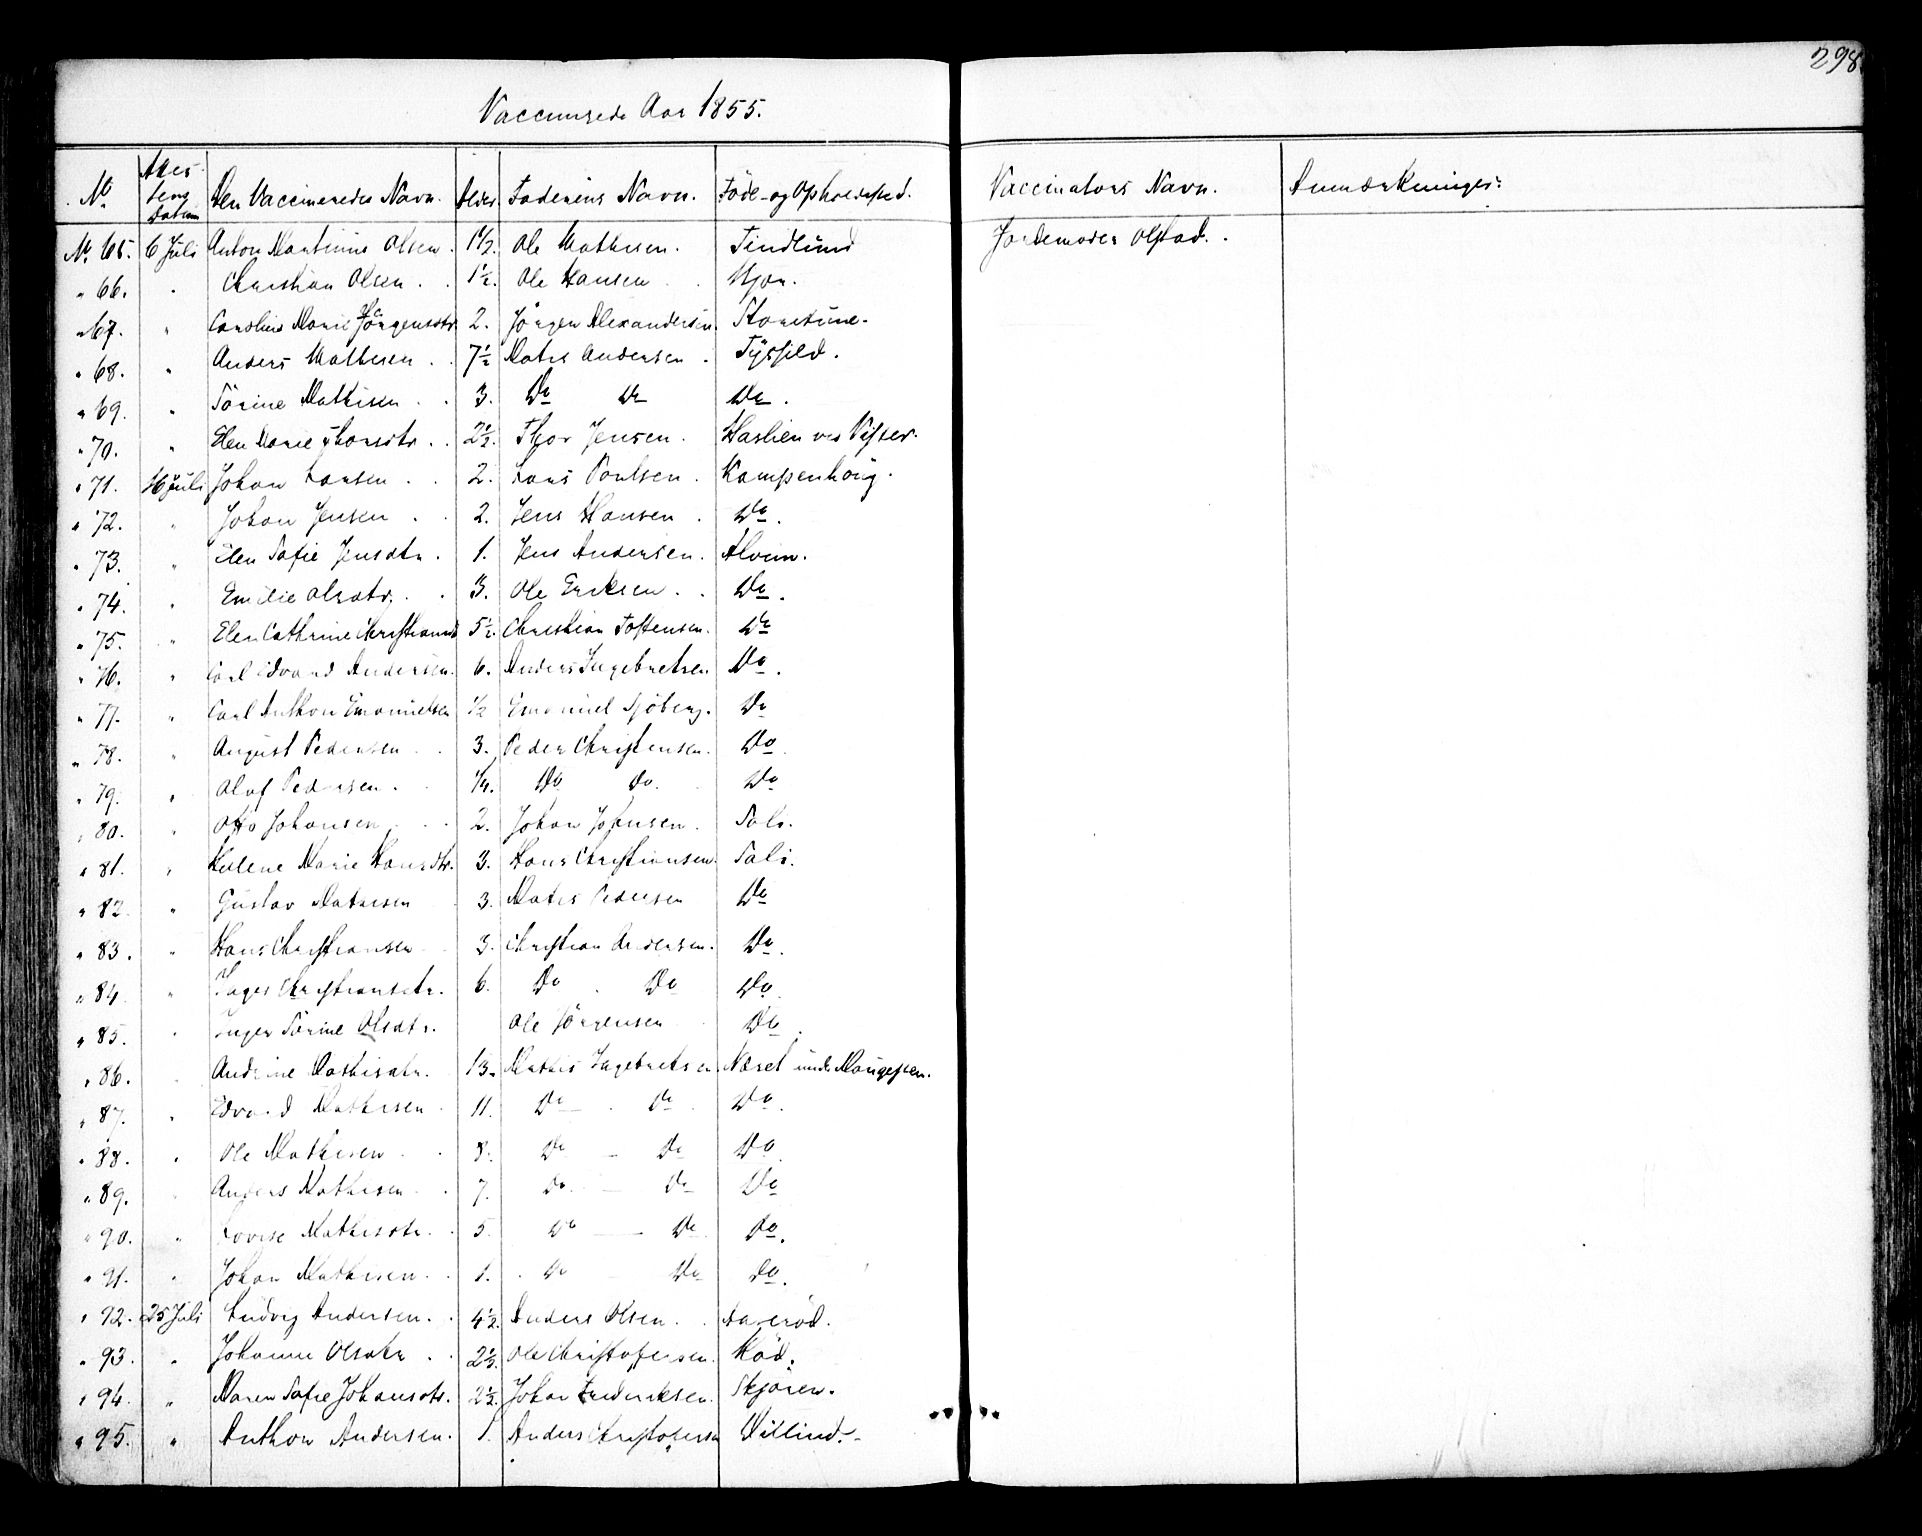 298
Vaccinerede Aar 1855.
No. Attestens Datum Den Vaccineredes Navn. Alder. Faderens Navn. Føde- og Opholdssted. Vaccinators Navn. Anmærkninger:
No. 65. 6 Juli Anton Martinius Olsen. 1 1/2. Ole Mathisen. Tindlund Jordemoder Olstad.
" 66. " Christian Olsen. 1 1/2. Ole Hansen
" 67. " Caroline Marie Jörgensdtr. 2. Jörgen Alexandersen.
" 68. " Anders Mathisen. 7 1/2 Mates Andersen.
" 69. " Sörine Mathisen. 3. Do Do Do.
" 70. " Elen Marie Thorsdtr. 2 1/2. Thor Jensen. Haslien ved Vister.
" 71. 16 Juli Johan Larsen. 2. Lars Poulsen. Kampenhöug.
" 72. " Johan Jensen. 2. Jens Hansen. Do.
" 73. " Elen Sofie Jensdtr. 1. Jens Andersen. Alvim.
" 74. " Emilie Olsdtr. 3. Ole Eriksen. Do.
" 75. " Elen Cathrine Christiansd 5 1/2. Christian Toftensen. Do
" 76. " Carl Edvard Andersen. 6. Anders Ingebretsen Do.
" 77. " Carl Anthon Emanuelsen 1/2 Emanuel Sjöberg. Do
" 78. " August Pedersen. 3. Peder Christensen. Do
" 79. " Oluf Pedersen. 1/4. Do Do. Do
" 80. " Otto Johansen 2. Johan Johnsen. Sali.
" 81. " Helene Marie Hansdtr. 3. Hans Christiansen. Sali.
" 82. " Gustav Mathisen 3. Mates Pedersen Do
" 83. " Hans Christiansen 3. Christian Andersen. Do.
" 84. " Inger Christiansdtr. 6. Do Do Do
" 85. " Inger Sörine Olsdtr. Ole Jörgensen Do.
" 86. Andrine Mathisdtr. 13. Mathis Ingebretsen. Næset under Haugesten.
" 87. " Edvard Mathisen. 11. Do Do Do.
" 88. " Ole Mathisen 8. Do Do Do
" 89. " Anders Mathisen 7. Do. Do Do
" 90. " Lovise Mathisdtr. 5 Do Do Do.
" 91. " Johan Mathisen. 1. Do Do Do.
" 92. 25 Juli Ludvig Andersen. 4 1/2. Anders Olsen.
" 93. " Johanne Olsdtr. 2 1/2. Ole Christofersen.
" 94. " Maren Sofie Johansdtr. 2 1/2. Johan Frederiksen. Skjören.
" 95. " Anthon Andersen. 1. Anders Christofersen